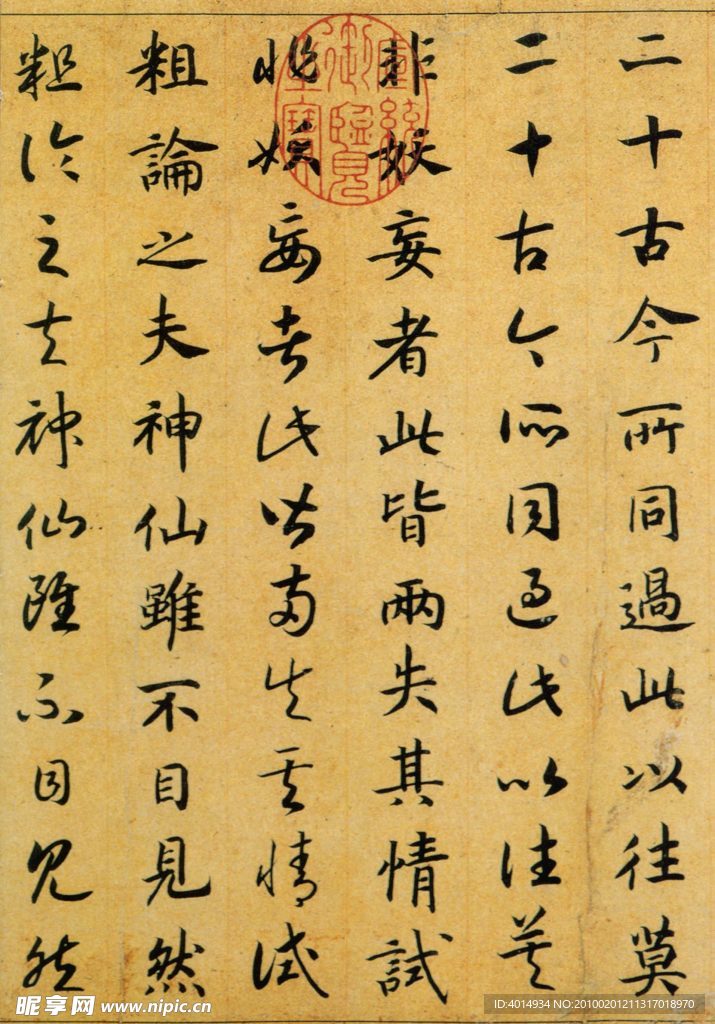 二十古今所同過此以往莫
二十古今所同過此以往莫
非妖妄者此皆兩失其情試
非妖妄者此皆兩失其情試
粗論之夫神仙雖不目見然
粗論之夫神仙雖不目見然
宣統御覽之寶
昵享网 www.nipic.cn
ID:4014934 NO:20100201211317018970